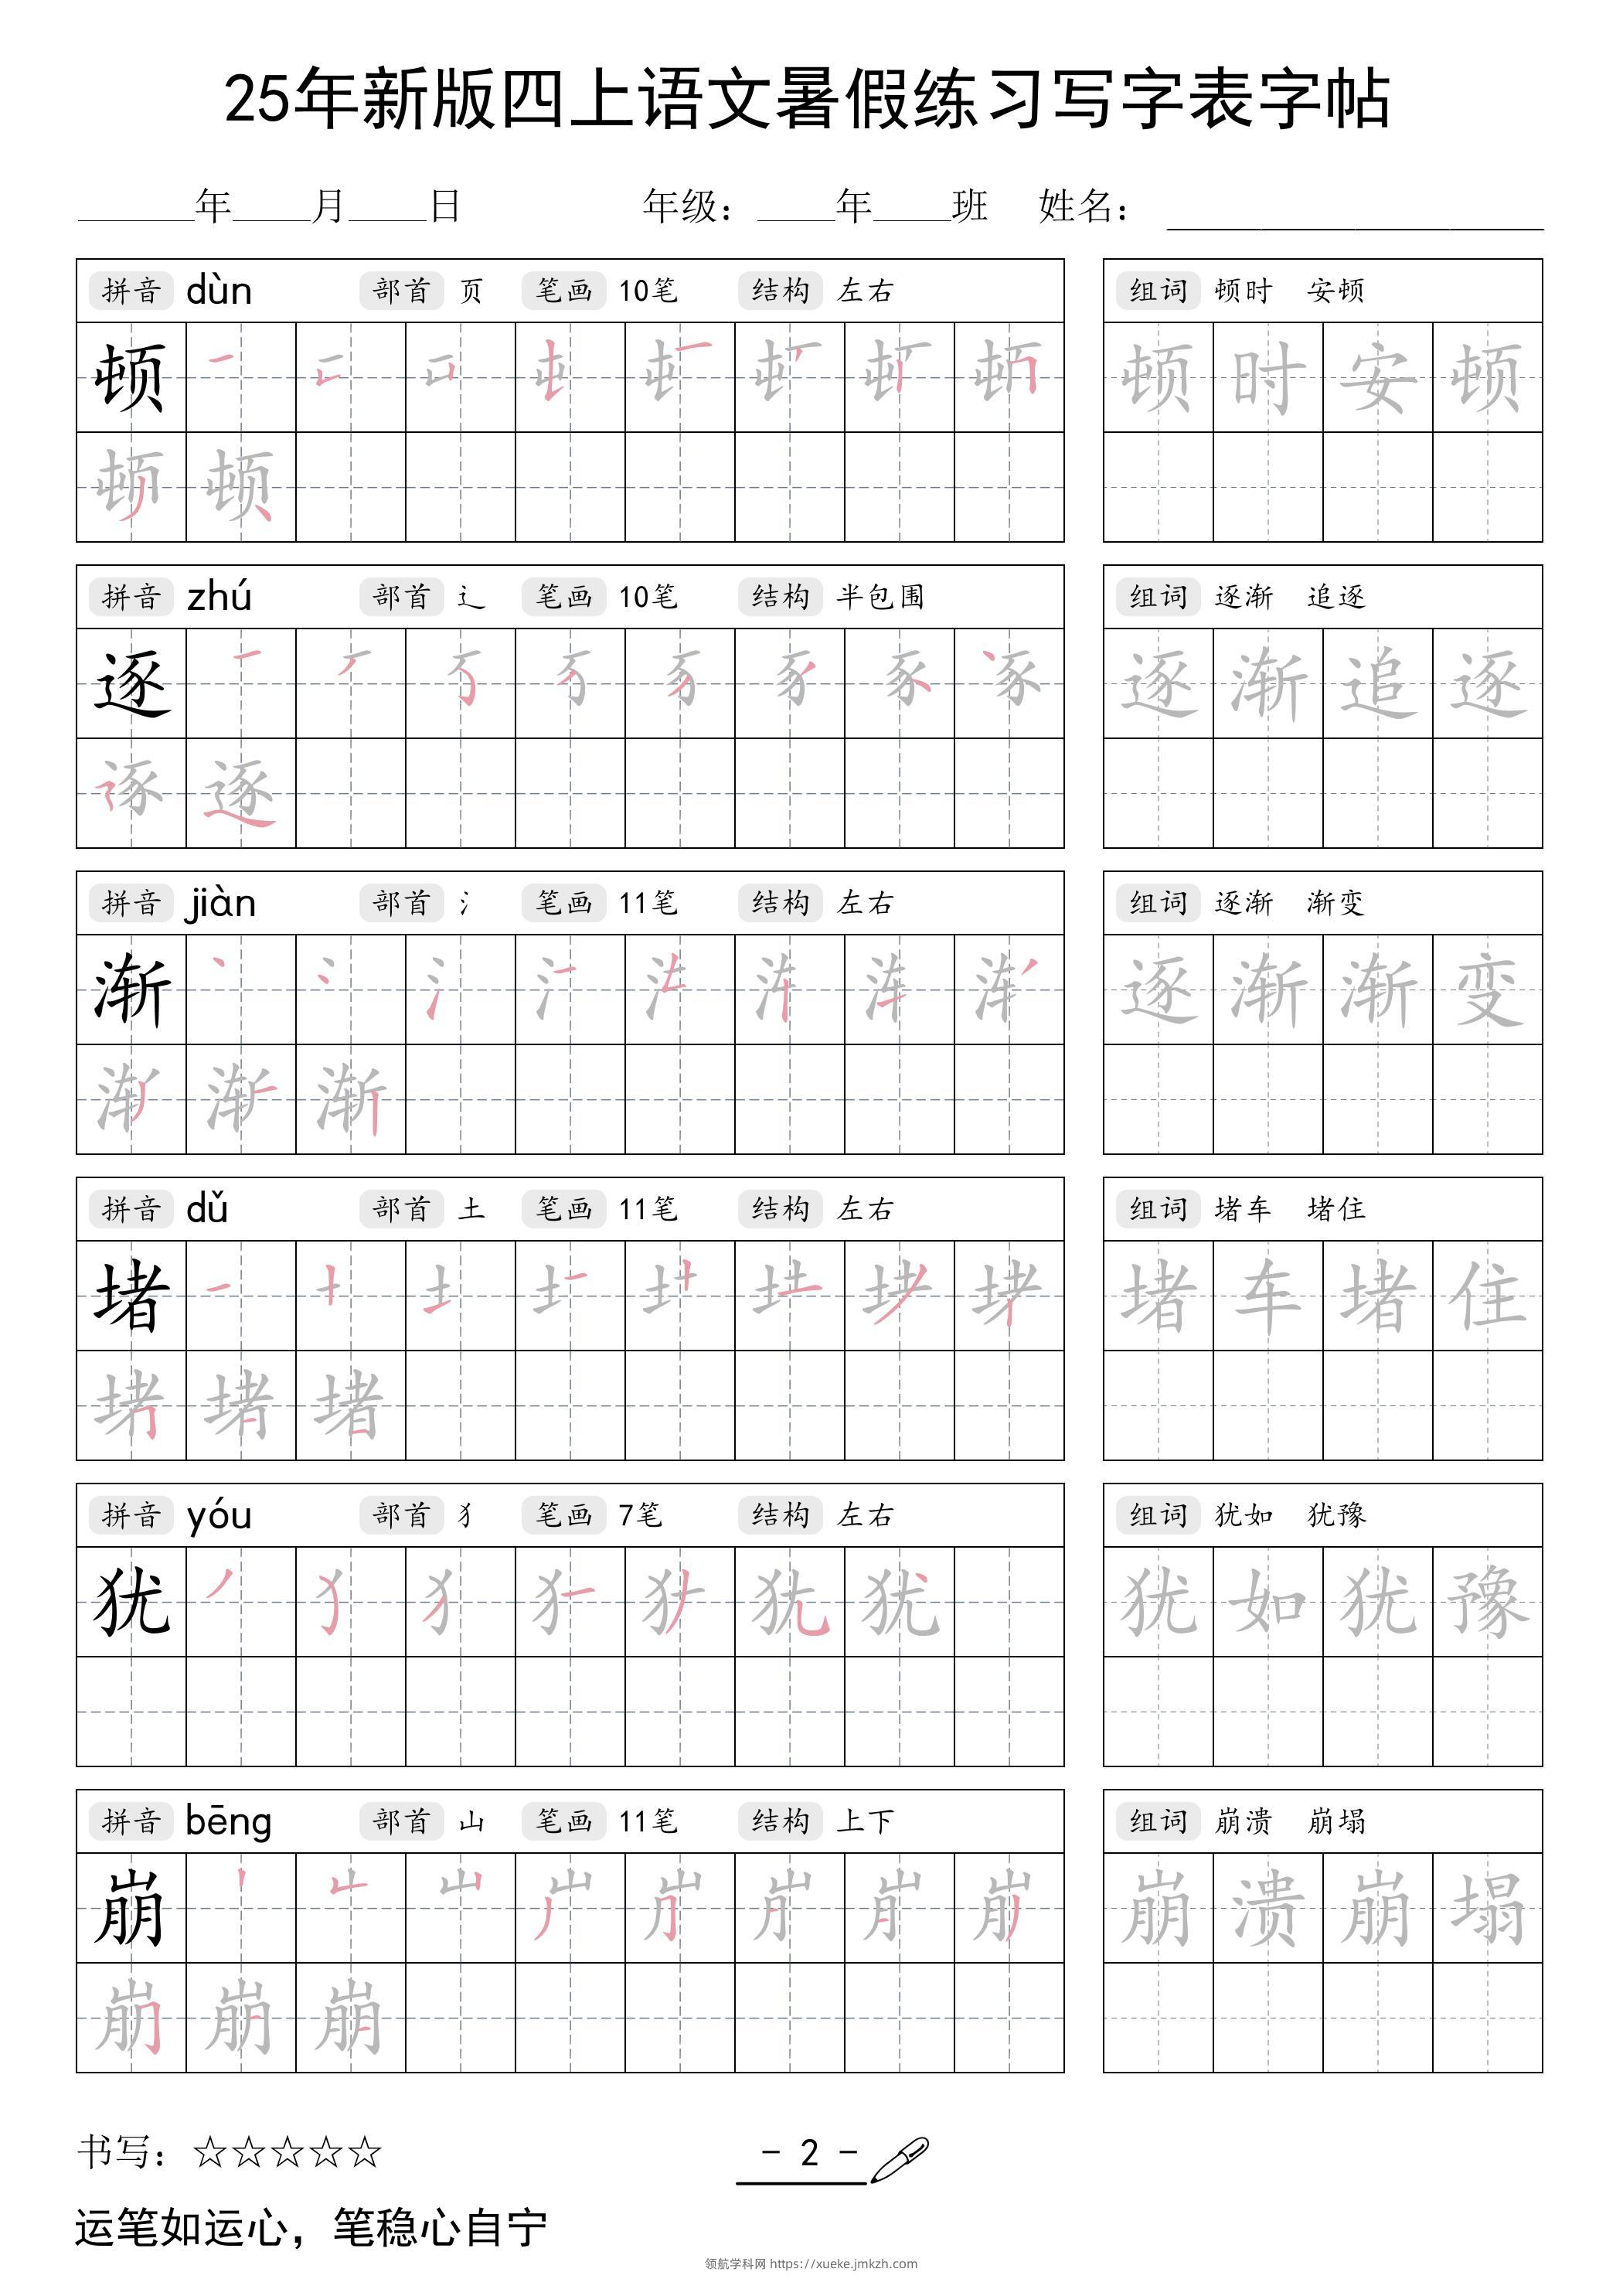 25年新版四上语文暑假练习写字表字帖
______年____月____日 年级：____年____班 姓名：____________________
拼音 dùn 部首 页 笔画 10笔 结构 左右 组词 顿时 安顿
顿 顿 时 安 顿
顿 顿
拼音 zhú 部首 辶 笔画 10笔 结构 半包围 组词 逐渐 追逐
逐 逐 渐 追 逐
逐
拼音 jiàn 部首 氵 笔画 11笔 结构 左右 组词 逐渐 渐变
渐 逐 渐 渐 变
渐
拼音 dǔ 部首 土 笔画 11笔 结构 左右 组词 堵车 堵住
堵 堵 车 堵 住
堵
拼音 yóu 部首 犭 笔画 7笔 结构 左右 组词 犹如 犹豫
犹 犹 犹 如 犹 豫
拼音 bēng 部首 山 笔画 11笔 结构 上下 组词 崩溃 崩塌
崩 崩 溃 崩 塌
崩
书写：☆☆☆☆☆
- 2 -
运笔如运心，笔稳心自宁
领航学科网 https://xueke.jmkzh.com